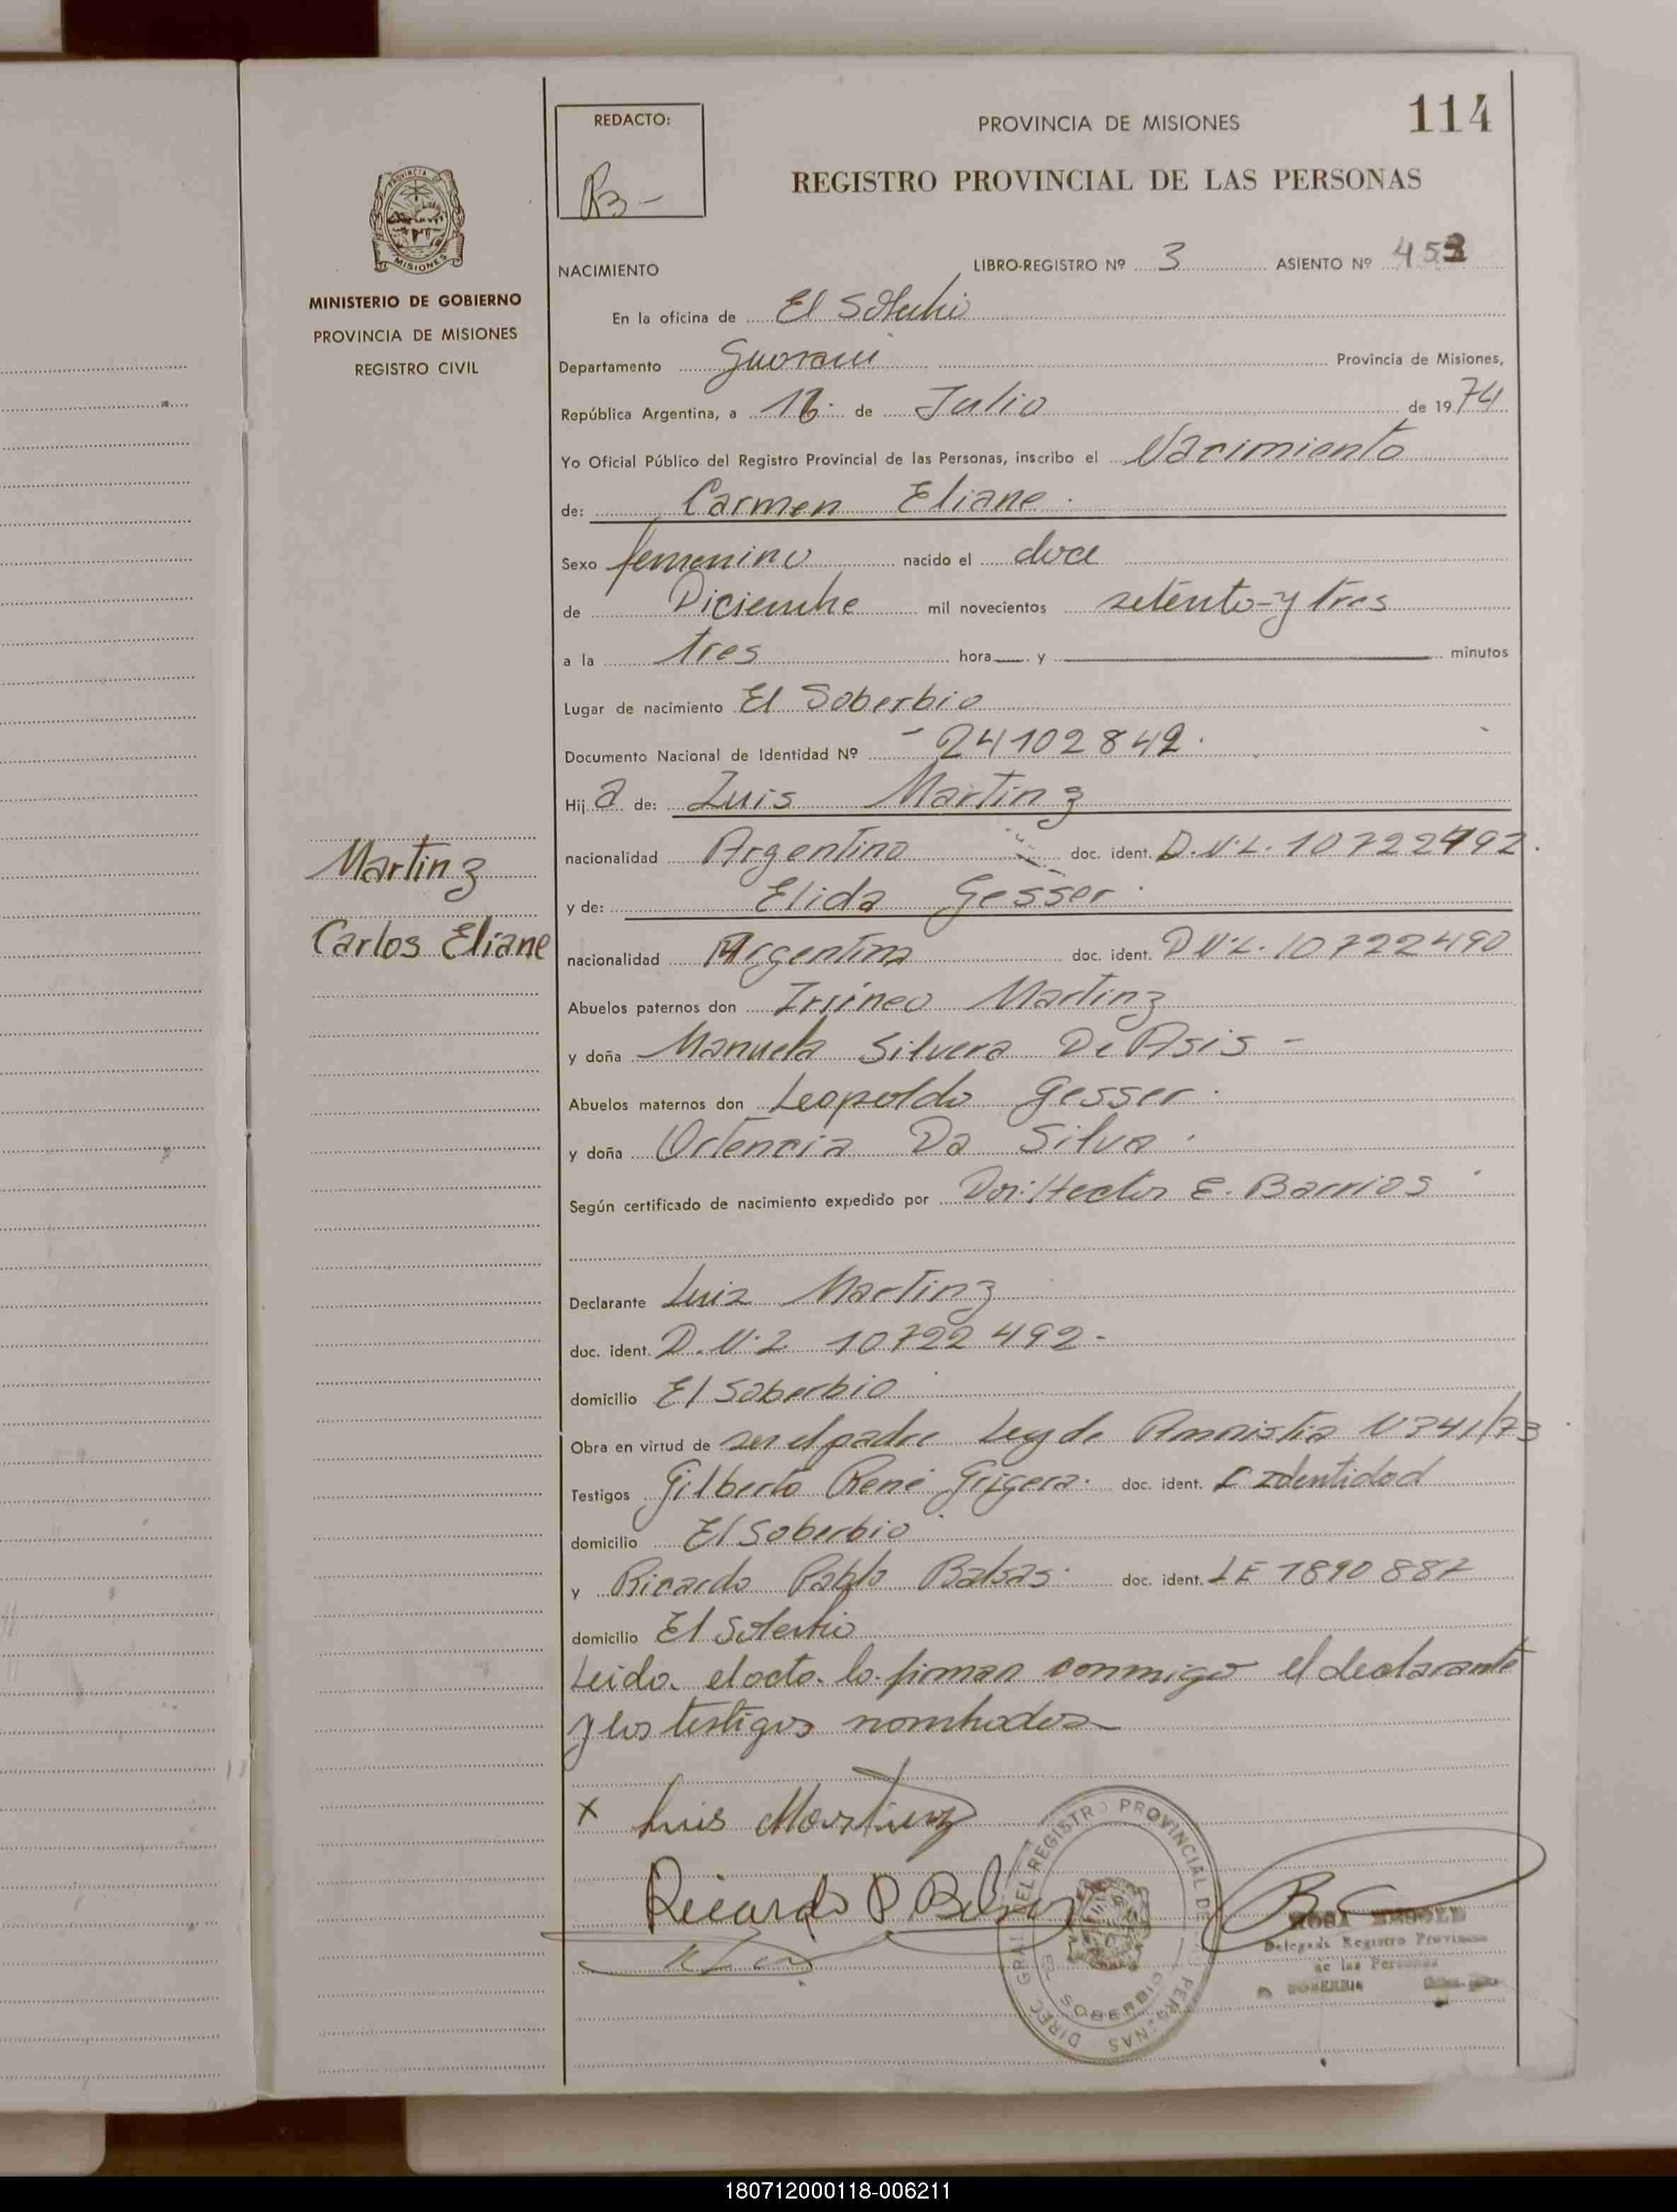 REDACTO:
PROVINCIA DE MISIONES
114
REGISTRO PROVINCIAL DE LAS PERSONAS
PROVINCIA DE
MISIONES
MINISTERIO DE GOBIERNO
PROVINCIA DE MISIONES
REGISTRO CIVIL
NACIMIENTO LIBRO-REGISTRO Nº 3 ASIENTO Nº 453
En la oficina de El Soberbio
Departamento Guarani Provincia de Misiones,
República Argentina, a 16 de Julio de 1974
Yo Oficial Público del Registro Provincial de las Personas, inscribo el Nacimiento
de: Carmen Eliane.
Sexo femenino nacido el doce
de Diciembre mil novecientos setenta y tres
a la tres hora y minutos
Lugar de nacimiento El Soberbio
Documento Nacional de Identidad Nº - 24102842.
Hij a de: Luis Martinz
nacionalidad Argentino doc. ident. D.N.I. 10722492.
y de: Elida Gesser.
nacionalidad Argentina doc. ident. D.N.I. 10722490
Martinz
Carlos Eliane
Abuelos paternos don Irsineo Martinz
y doña Manuela Silvera De Asis -
Abuelos maternos don Leopoldo Gesser.
y doña Ortencia Da Silva.
Según certificado de nacimiento expedido por Dor: Hector E. Barrios
Declarante Luiz Martinz
doc. ident. D.N.I 10722492-
domicilio El Soberbio
Obra en virtud de ser el padre Ley de Amnistia Nº 341/73
Testigos Gilberto René Grigera. doc. ident. C Identidad
domicilio El Soberbio
y Ricardo Pablo Balsas. doc. ident. LE 1890887
domicilio El Soberbio
Leida el acta lo firman conmigo el declarante
y los testigos nombrados
x Luis Martinz
Ricardo P. Balsas
DIREC. GRAL. DEL REGISTRO PROVINCIAL DE PERSONAS
EL SOBERBIO
ROSA
Delegada Registro Provincial
de las Personas
SOBERBIO
180712000118-006211